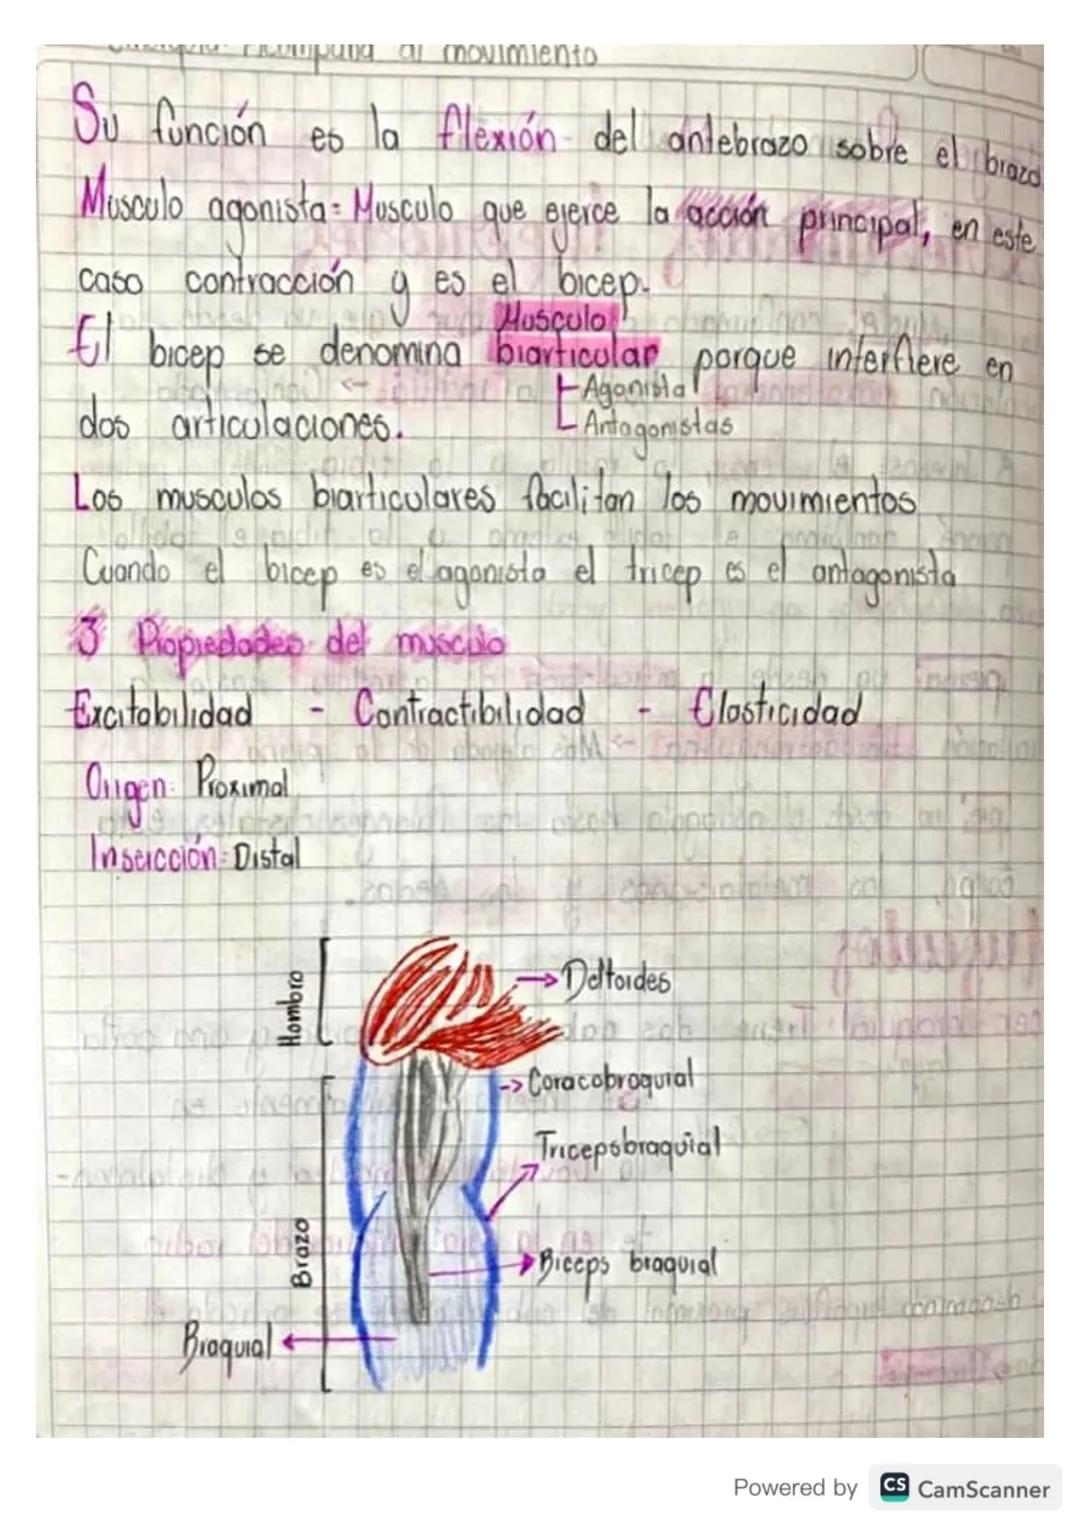 al movimiento
Su función es la flexión del antebrazo sobre el brazo
Musculo agonista = Musculo que ejerce la acción principal, en este
caso contracción y es el bicep.
Musculo
El bicep se denomina biarticular porque interfiere en
Agonista
dos articulaciones.
Antagonistas
Los musculos biarticulares facilitan los movimientos
Cuando el bicep es el agonista el tricep es el antagonista
3 Propiedades del musculo
Excitabilidad - Contractibilidad - Elasticidad
Origen: Proximal
Inserción: Distal
Hombro
Deltoides
Coracobraquial
Tricepsbraquial
Brazo
Biceps braquial
Braquial
Powered by CS CamScanner